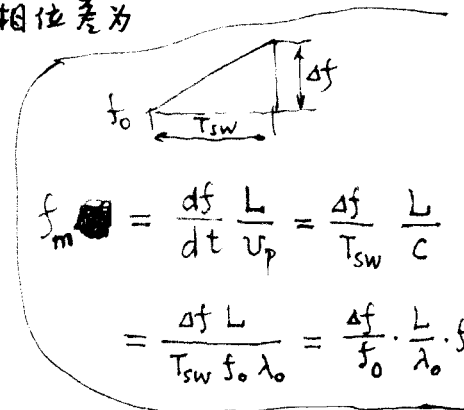 相位差为
Δf
f₀
T_SW
f_m = df/dt L/υ_p = Δf/T_SW L/C
= Δf L/T_SW f₀ λ₀ = Δf/f₀ · L/λ₀ · f